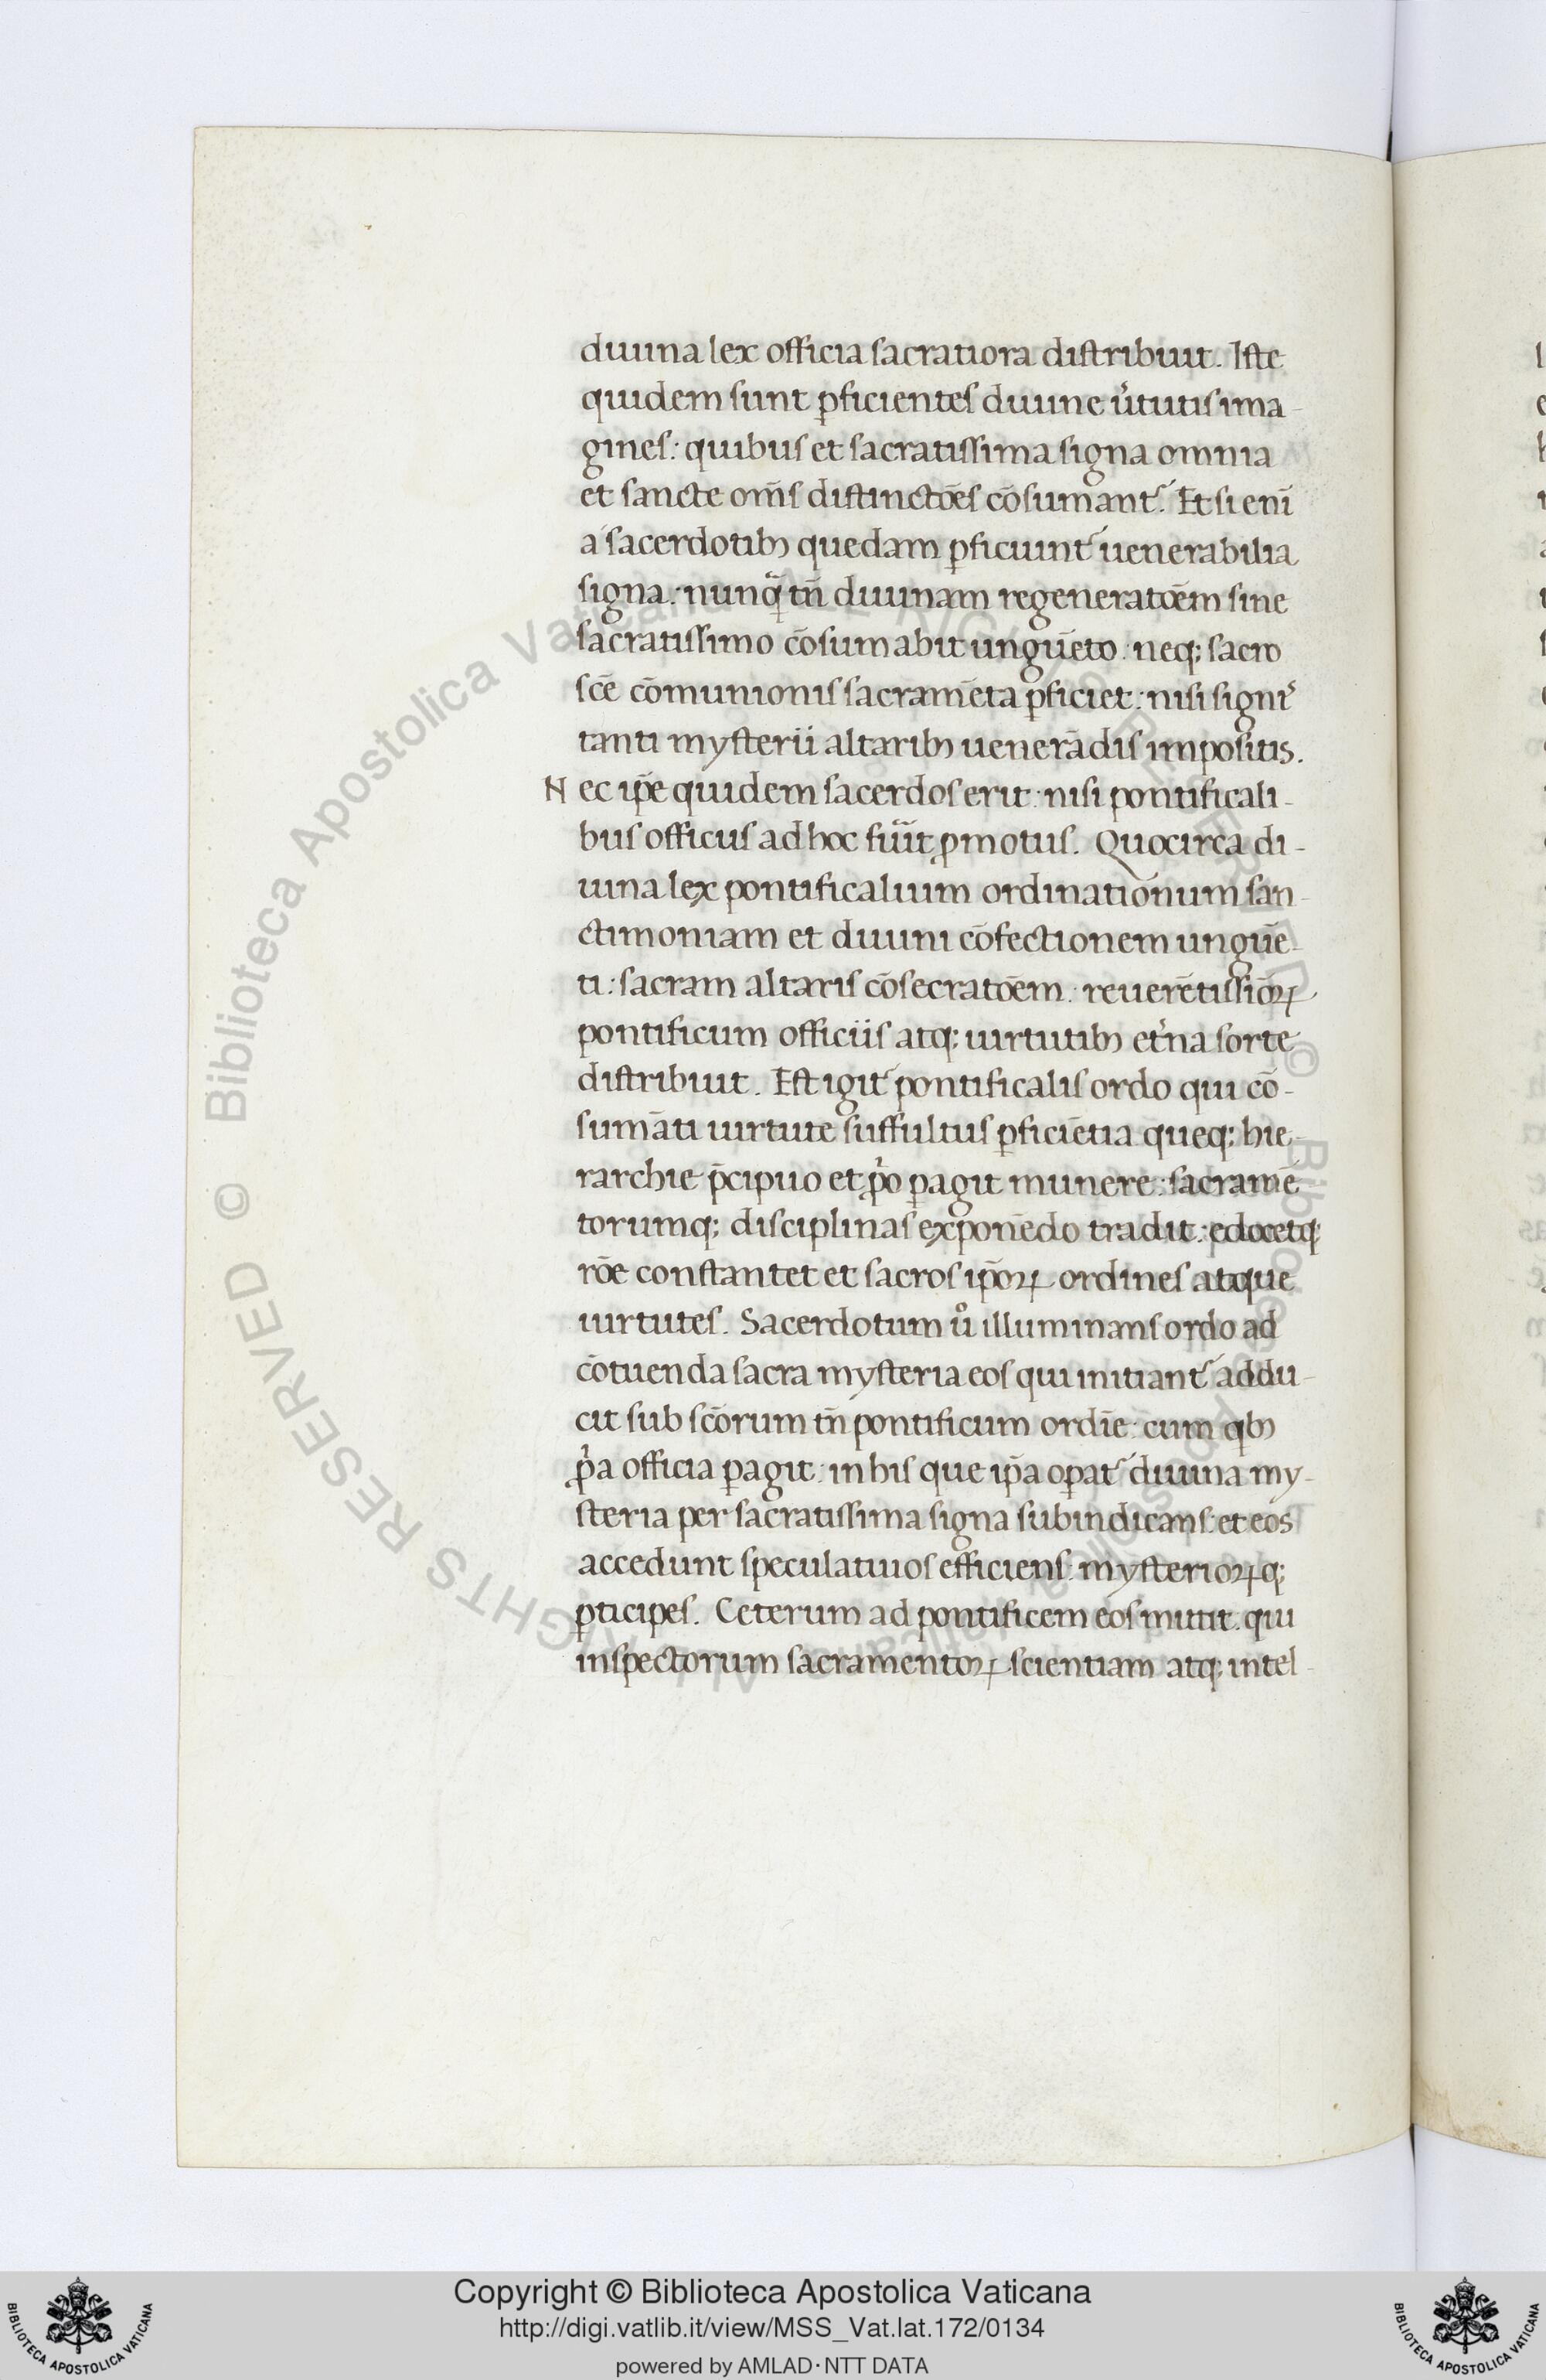 diuina lex officia sacratiora distribuit. Iste
quidem sunt ꝑficientes diuine u̓tutis ima-
gines: quibus et sacratissima signa omnia
et sancte om̄s distinctōes cōsumant᷑. Et si eni̅
a sacerdotibꝫ quedam ꝑficiunt᷑ uenerabilia
signa: nunꝗ̃ tn̄ diuinam regeneratōem sine
sacratissimo cōsumabit ungue̅to: neqꝫ sacro
sce̅ cōmunionis sacrame̅ta ꝑficiet: nisi signi᷑
tanti mysterii altaribꝫ uenera̅dis impositis.
Nec ip̅e quidem sacerdos erit: nisi pontificali-
bus officiis ad hoc fu̅it ꝓmotus. Quocirca di-
uina lex pontificalium ordinationum san-
ctimoniam et diuini cōfectionem ungue̅-
ti: sacram altaris cōsecratōem: reuere̅tissiōꝝ
pontificum officiis atqꝫ uirtutibꝫ et̓na sorte
distribuit. Est igit᷑ pontificalis ordo qui cō-
suma̅ti uirtute suffultus ꝑficie̅tia queqꝫ hie-
rarchie p̄cipuo et p̓o ꝑagit munere: sacrame̅
torumqꝫ disciplinas expone̅do tradit: edocetqꝫ
rōe constantet et sacros ip̅oꝝ ordines atque
uirtutes. Sacerdotum uͦ illuminans ordo ad
cōtuenda sacra mysteria eos qui initiant᷑ addu-
cit sub sc̅orum tn̄ pontificum ordi̅e: cum qbꝫ
p̓a officia ꝑagit: in his que ip̅a oꝑat᷑ diuina my-
steria per sacratissima signa subindicans: et eos
accedunt speculatiuos efficiens: mysterioꝝqꝫ
ꝑticipes. Ceterum ad pontificem eos mittit. qui
inspectorum sacramentoꝝ scientiam atqꝫ intel-
Copyright © Biblioteca Apostolica Vaticana
http://digi.vatlib.it/view/MSS_Vat.lat.172/0134
powered by AMLAD·NTT DATA